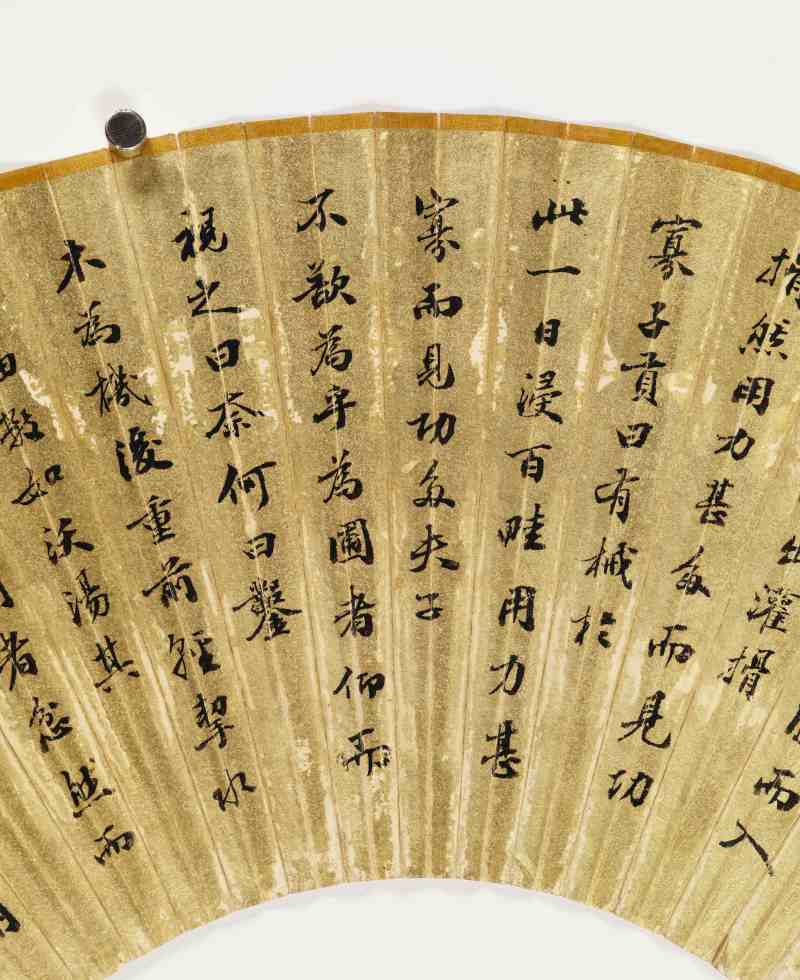 而入
出灌搰
搰然用力甚多而見功
寡子貢曰有械於
此一日浸百畦用力甚
寡而見功多夫子
不欲為乎為圃者仰而
視之曰奈何曰鑿
木為機後重前輕挈水
數如沃湯其
者忿然而